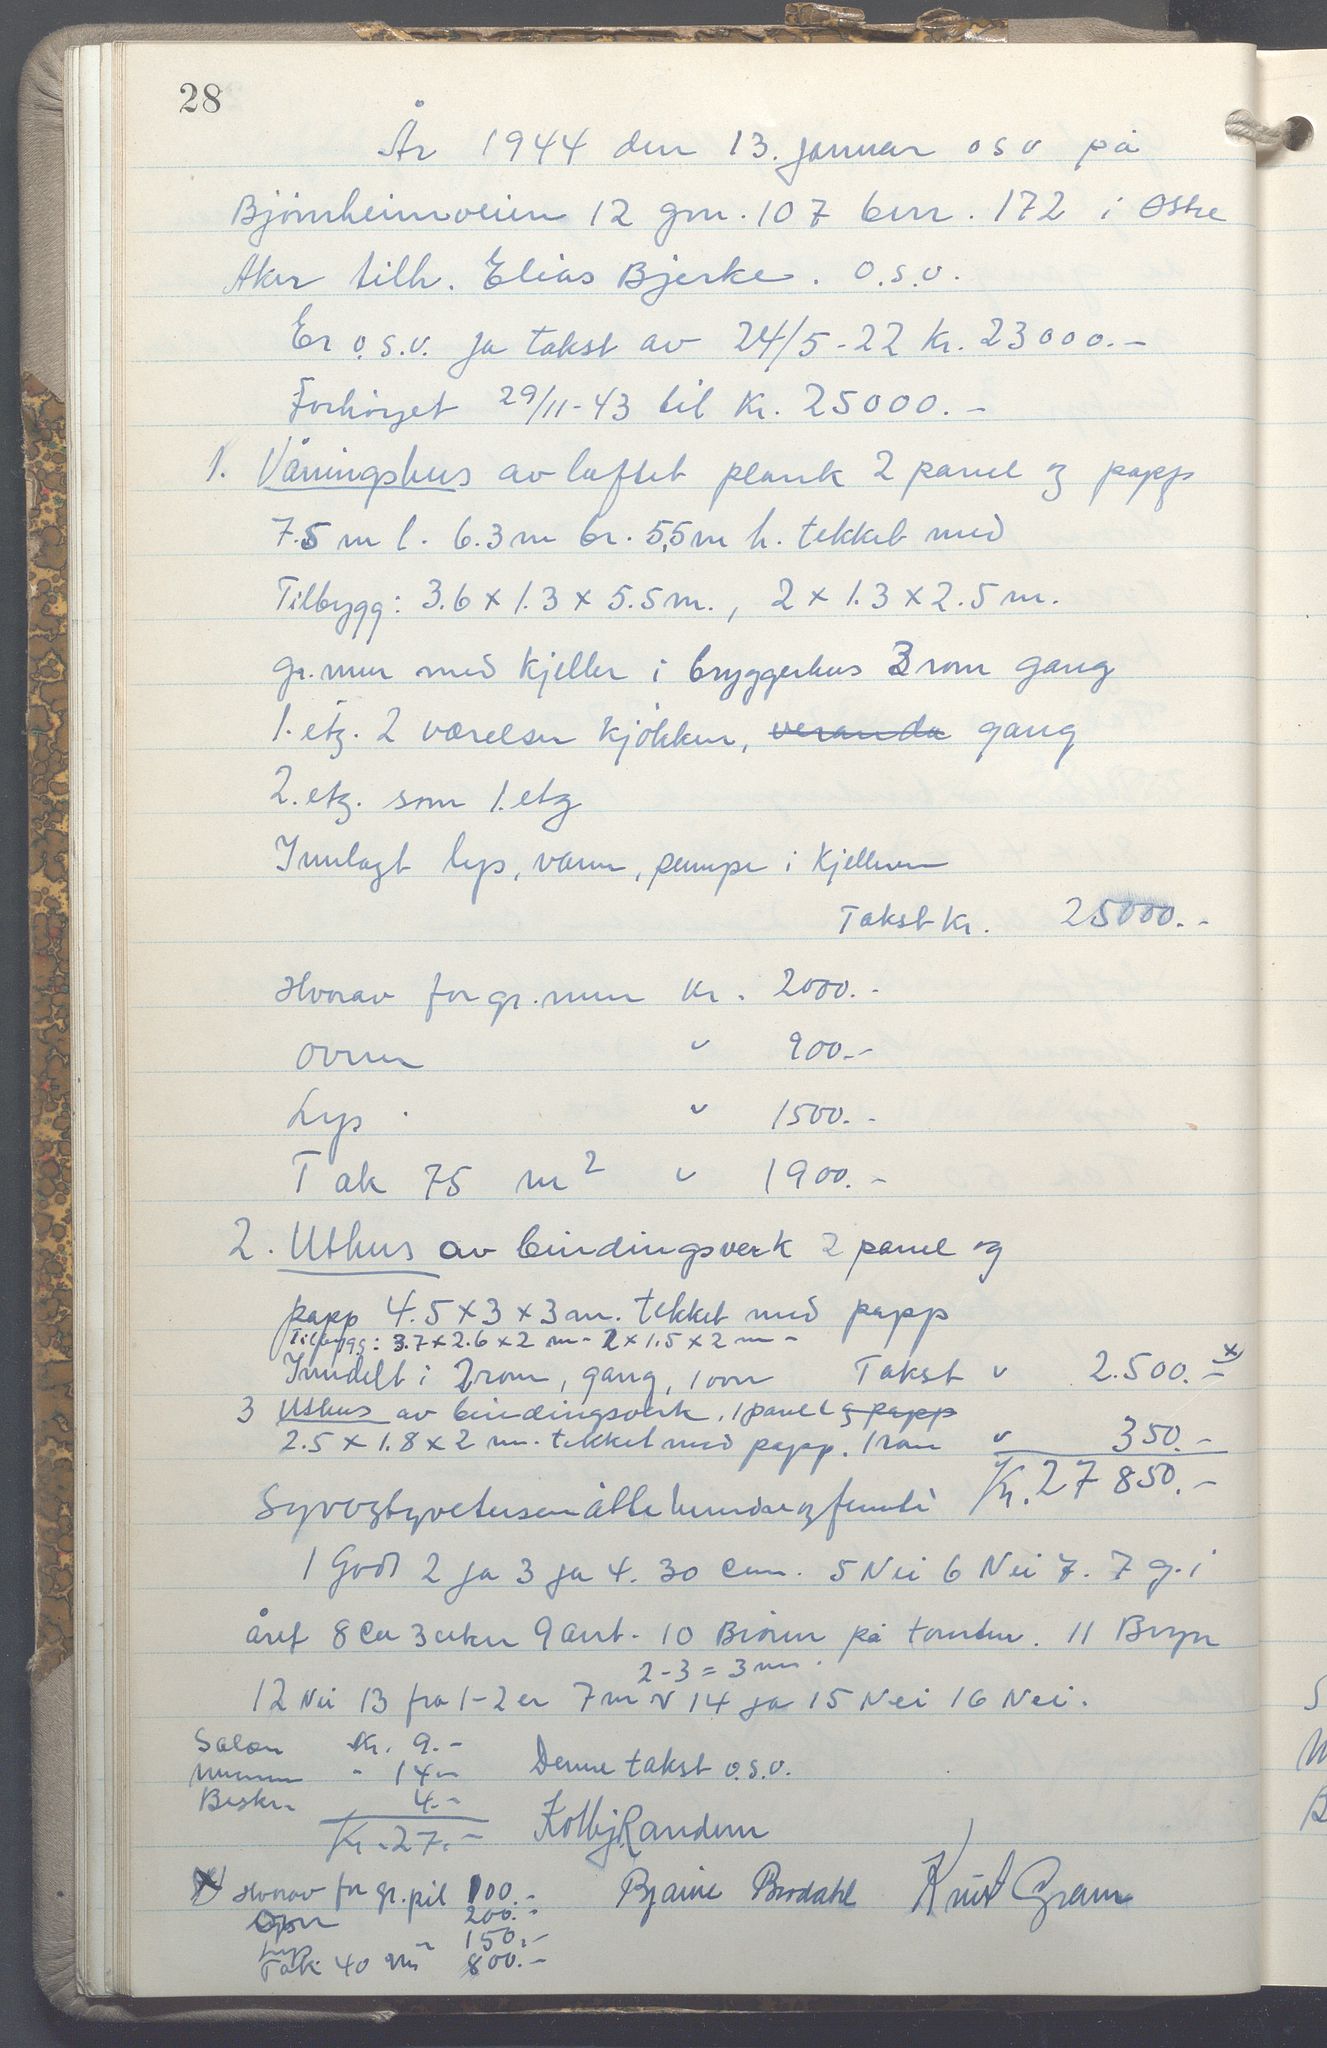 28
År 1944 den 13. januar o s v på
Bjørnheimveien 12 gnr. 107 bnr. 172 i Østre
Aker tilh. Elias Bjerke. o.s.v.
Er o.s.v. ja takst av 24/5-22 kr. 23000.-
Forhøyet 29/11-43 til kr. 25000.-
1. Våningshus av laftet plank 2 panel og papp
7.5 m l. 6.3 m br. 5,5 m h. tekket med
Tilbygg: 3.6 x 1.3 x 5.5 m., 2 x 1.3 x 2.5 m.
gr.mur med kjeller i bryggerhus 3 rom gang
1. etg. 2 værelser kjøkken, veranda gang
2. etg. som 1. etg
Innlagt lys, vann, pumpe i kjelleren
Takst kr. 25000.-
Hvorav for gr.mur kr. 2000.-
ovner " 900.-
Lys " 1500.-
Tak 75 m2 " 1900.-
2. Uthus av bindingsverk 2 panel og
papp 4.5 x 3 x 3 m. tekket med papp
Tilbygg: 3.7 x 2.6 x 2 m - 2 x 1.5 x 2 m -
Inndelt i 2 rom, gang, 1 ovn Takst " 2.500.- x
3 Uthus av bindingsverk. 1 panel og papp
2.5 x 1.8 x 2 m. tekket med papp. 1 rom " 350.-
Syvogtyvetusenåttehundreogfemti Kr. 27 850.-
1 God 2 ja 3 ja 4. 30 cm. 5 Nei 6 Nei 7. 7 g. i
året 8 Ca 3 uker 9 ant. 10 Brønn på tomten. 11 Bryn
2-3 = 3 m
12 Nei 13 fra 1-2 er 7 m v 14 ja 15 Nei 16 Nei.
Salær Kr. 9.-
" 14.- Denne takst o.s.v.
Beskr. 4.-
Kr. 27.- Kolbj Randem
x Hvorav for gr.pil 100.- Bjarne Brodahl Knut Gram
Ovn 200.-
Lys " 150.-
Tak 40 m 800.-